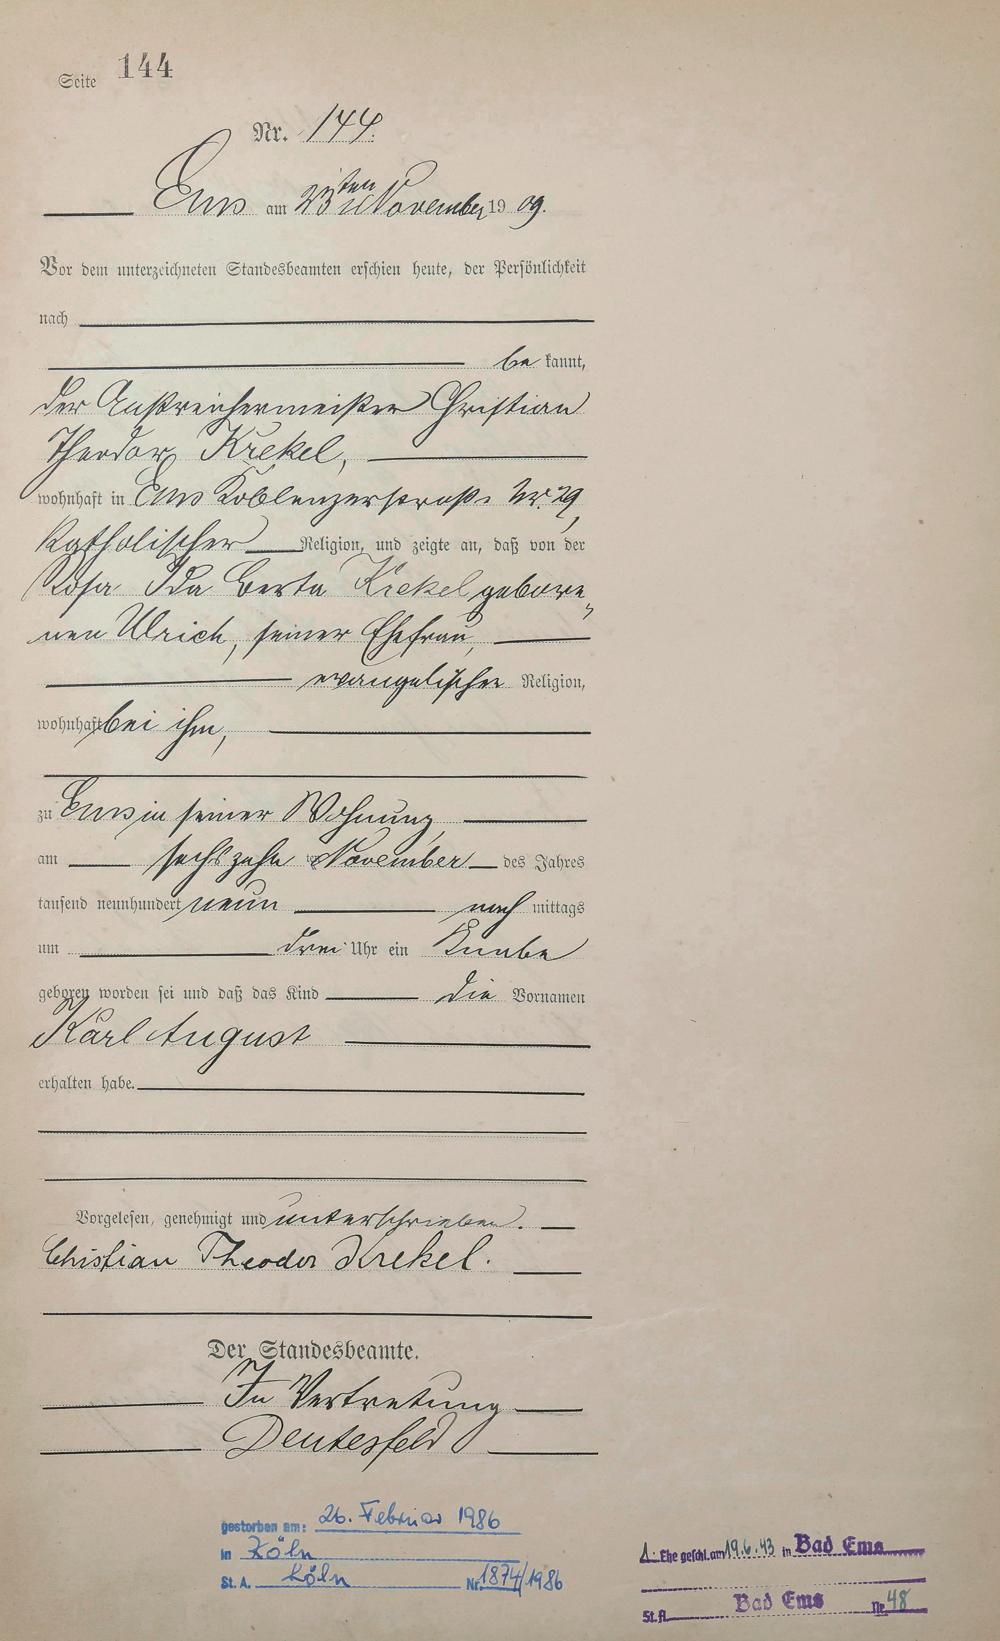 Seite 144
Nr. 144.
Ems am 23ten November 1909.
Vor dem unterzeichneten Standesbeamten erschien heute, der Persönlichkeit
nach
be kannt,
der Anstreichermeister Christian
Theodor Krekel,
wohnhaft in Ems Koblenzerstraße Nr. 29,
katholischer Religion, und zeigte an, daß von der
Rosa Ida Berta Krekel gebore„
nen Ulrich, seiner Ehefrau,
evangelischer Religion,
wohnhaft bei ihm,
zu Ems in seiner Wohnung
am sechszehn November des Jahres
tausend neunhundert neun nach mittags
um drei Uhr ein Knabe
geboren worden sei und daß das Kind die Vornamen
Karl August
erhalten habe.
Vorgelesen, genehmigt und unterschrieben.
Christian Theodor Krekel.
Der Standesbeamte.
In Vertretung
Deutesfeld
gestorben am: 26. Februar 1986
in Köln
St. A. Köln Nr. 1874/1986
1. Ehe geschl. am 19.6.43 in Bad Ems
St. A. Bad Ems Nr. 48